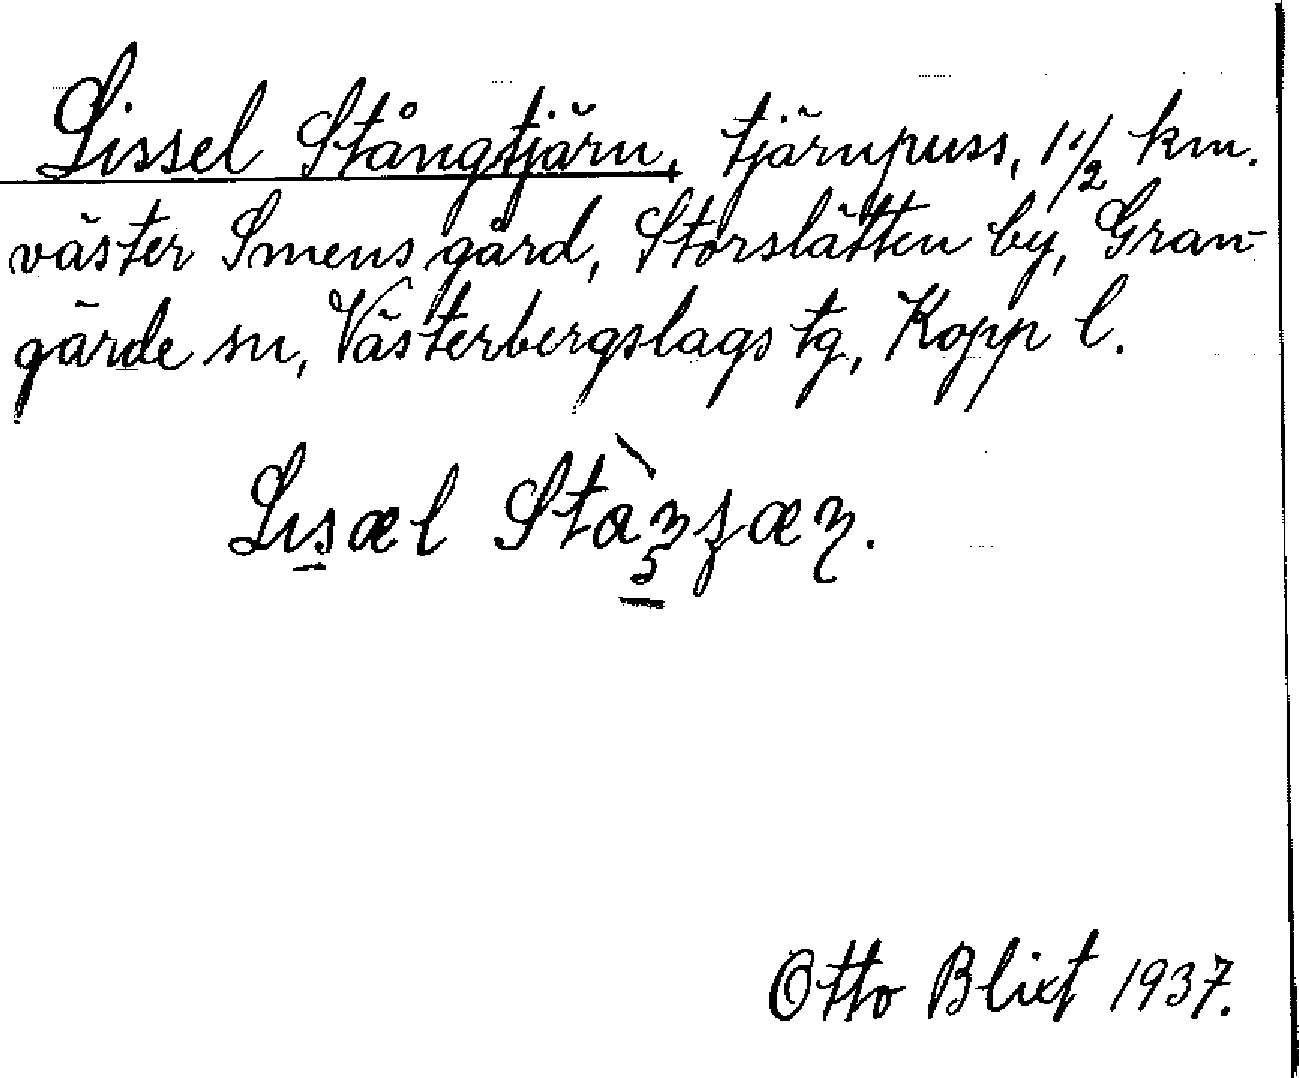 Lissel Stångtjärn, tjärnpuss, 1 1/2 km.
väster Smens gård, Storslätten by, Gran-
gärde sn, Västerbergslags tg, Kopp l.
Otto Blixt 1937.